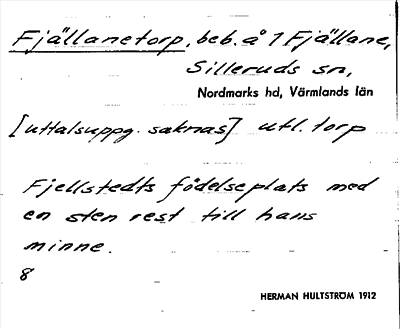 Fjällanetorp, beb. å 1 Fjällane,
Silleruds sn,
Nordmarks hd, Värmlands län
[uttalsuppg. saknas] utl. torp
Fjellstedts födelseplats med
en sten rest till hans
minne.
8
HERMAN HULTSTRÖM 1912